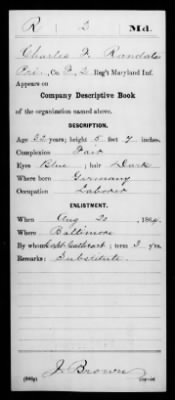 R 3 Md.
Charles F. Randale
Pri., Co. 2 Reg't Maryland Inf.
Appears on
Company Descriptive Book
of the organization named above.
DESCRIPTION.
Age 22 years; height 5 feet 7 inches.
Complexion Fair
Eyes Blue; hair Dark
Where born Germany
Occupation Laborer
ENLISTMENT.
When Aug 20, 1864.
Where Baltimore
By whom Capt Cathcart; term 3 y'rs.
Remarks: Substitute.
J. Brown
Copyist.